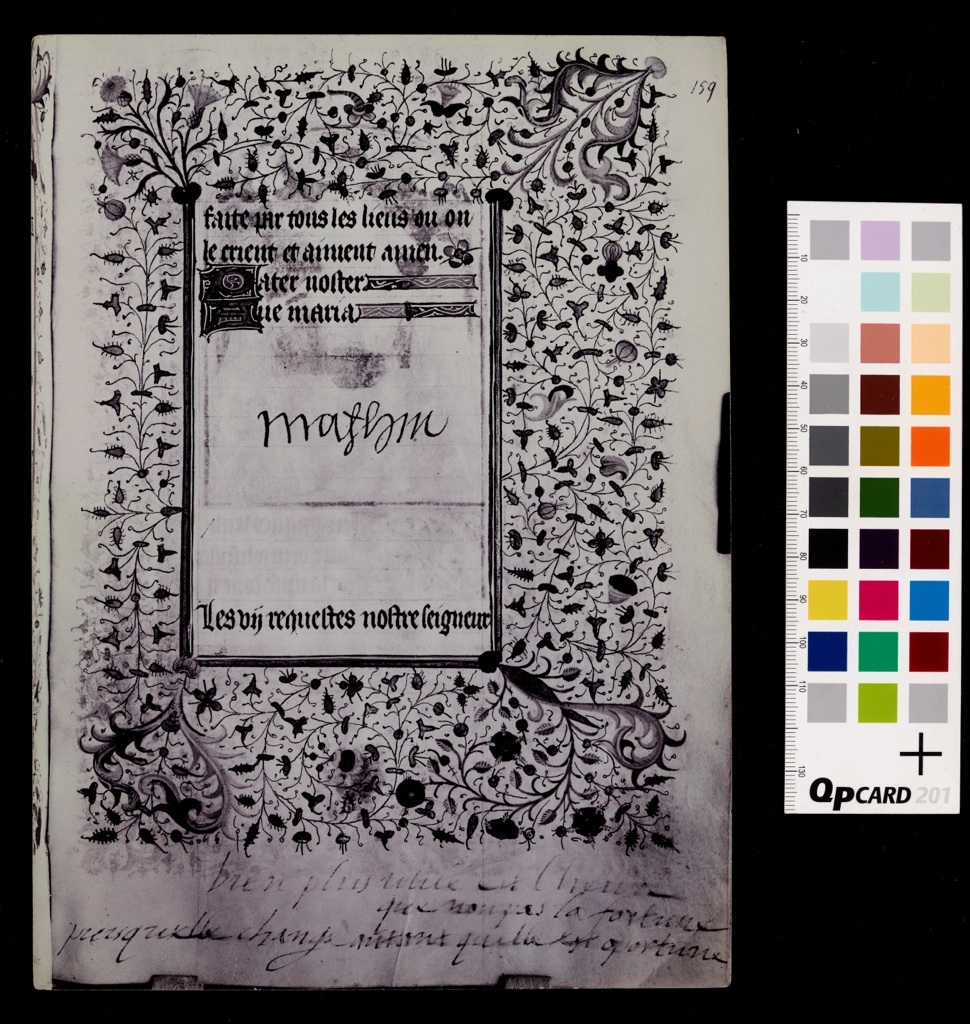 159
faite par tous les lieus ou on
le crient et aiment amen.
Pater noster
Aue maria
mathin
Les vij requestes nostre seigneur
bien plus utile est l'heur
que non pas la fortune
puisquelle change autant quelle est oportune
10
20
30
40
50
60
70
80
90
100
110
130
QPCARD 201